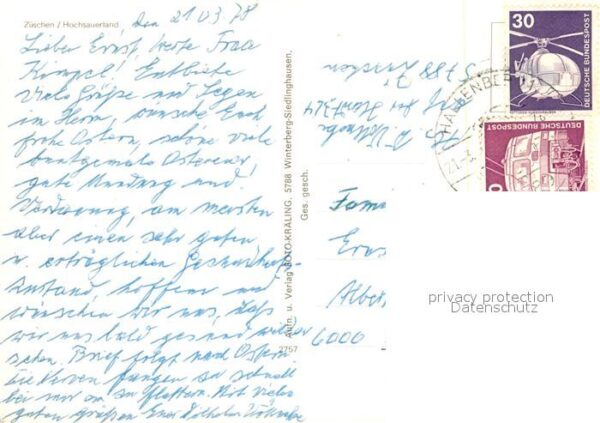 Züschen / Hochsauerland
den 21 03 78
Lieber Ernst, werte Frau
Entbiete
viele Grüße und Segen
im Herrn, wünsche Euch
frohe Ostern, schöne viele
buntgemalte Ostereier,
gute und
Verdauung, am meisten
aber einen sehr guten
u. erträglichen Gesundheits-
zustand, hoffen und
wünschen wir uns, daß
wir uns bald gesund wieder
sehen. Brief folgt nach Ostern
Die Nerven fangen so schnell
bei mir an zu flattern. Mit vielen
guten Grüßen Euer Wilhelm
2757 Aufn. u. Verlag FOTO-KRÄLING, 5788 Winterberg-Siedlinghausen,
Ges. gesch.
5788
30
DEUTSCHE BUNDESPOST
DEUTSCHE BUNDESPOST
HALLENBERG
Fam
Erns
Albe
6000
privacy protection
Datenschutz